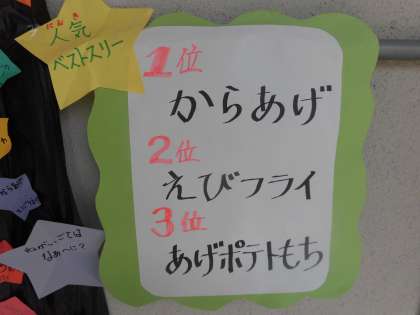 人気
にんき
ベストスリー
1位
からあげ
2位
えびフライ
3位
あげポテトもち